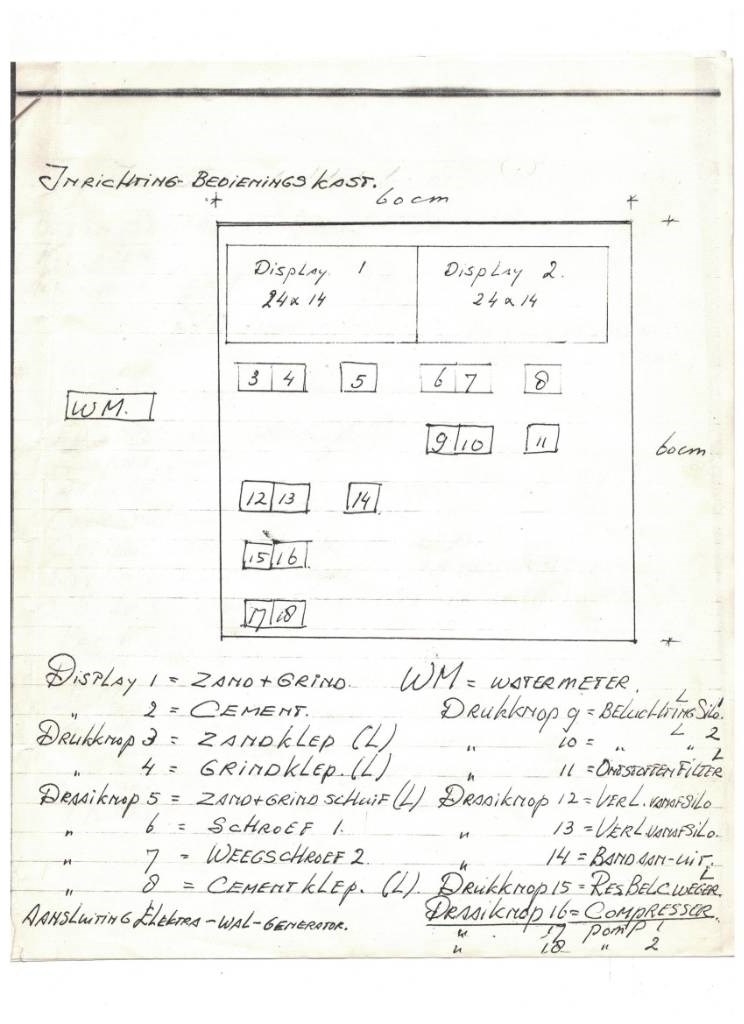 INRICHTING-BEDIENINGSKAST.
60cm
Display 1
24x14
Display 2.
24x14
3 4 5 6 7 8
WM.
9 10 11
60cm
12 13 14
15 16
17 18
DISPLAY 1 = ZAND+GRIND. WM = WATERMETER.
" 2 = CEMENT. DRUKKNOP 9 = BELUCHTING SILO. L 1
DRUKKNOP 3 = ZANDKLEP (L) " 10 = " " 2 L
" 4 = GRINDKLEP. (L) " 11 = ONTSTOFFEN FILTER L
DRAAIKNOP 5 = ZAND+GRIND SCHUIF (L) DRAAIKNOP 12 = VERL. VANAF SILO
" 6 = SCHROEF 1. " 13 = VERL VANAF SILO.
" 7 = WEEGSCHROEF 2. " 14 = BAND AAN-UIT.
" 8 = CEMENTKLEP. (L). DRUKKNOP 15 = RES BEL C WEGER. L
AANSLUITING ELEKTRA-WAL-GENERATOR. DRAAIKNOP 16 = COMPRESSOR.
" 17 POMP 1
" 18 " 2